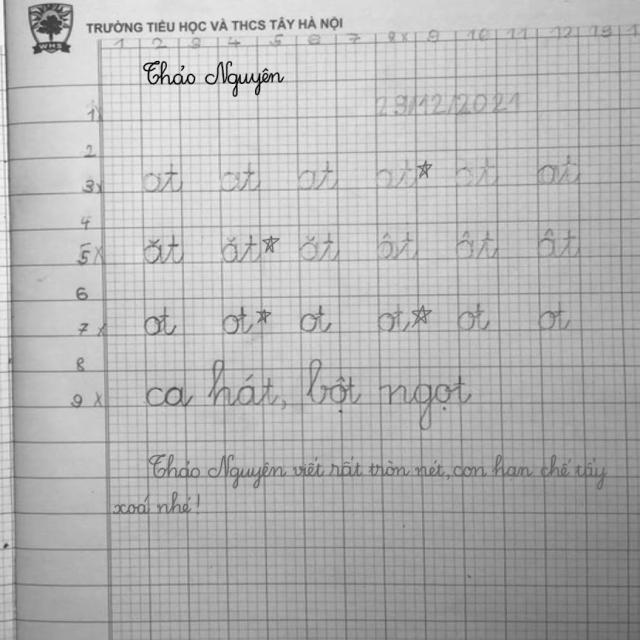 WHS TRƯỜNG TIỂU HỌC VÀ THCS TÂY HÀ NỘI
1 2 3 4 5 6 7 8x 9 10 11 12 13
Thảo Nguyên
1 29/12/2021
2
3x at at at at☆ at at
4
5x ăt ăt☆ ăt ât ât ât
6
7x ot ot☆ ot ot☆ ot ot
8
9x ca hát, bột ngọt
Thảo Nguyên viết rất tròn nét, con hạn chế tẩy
xoá nhé!